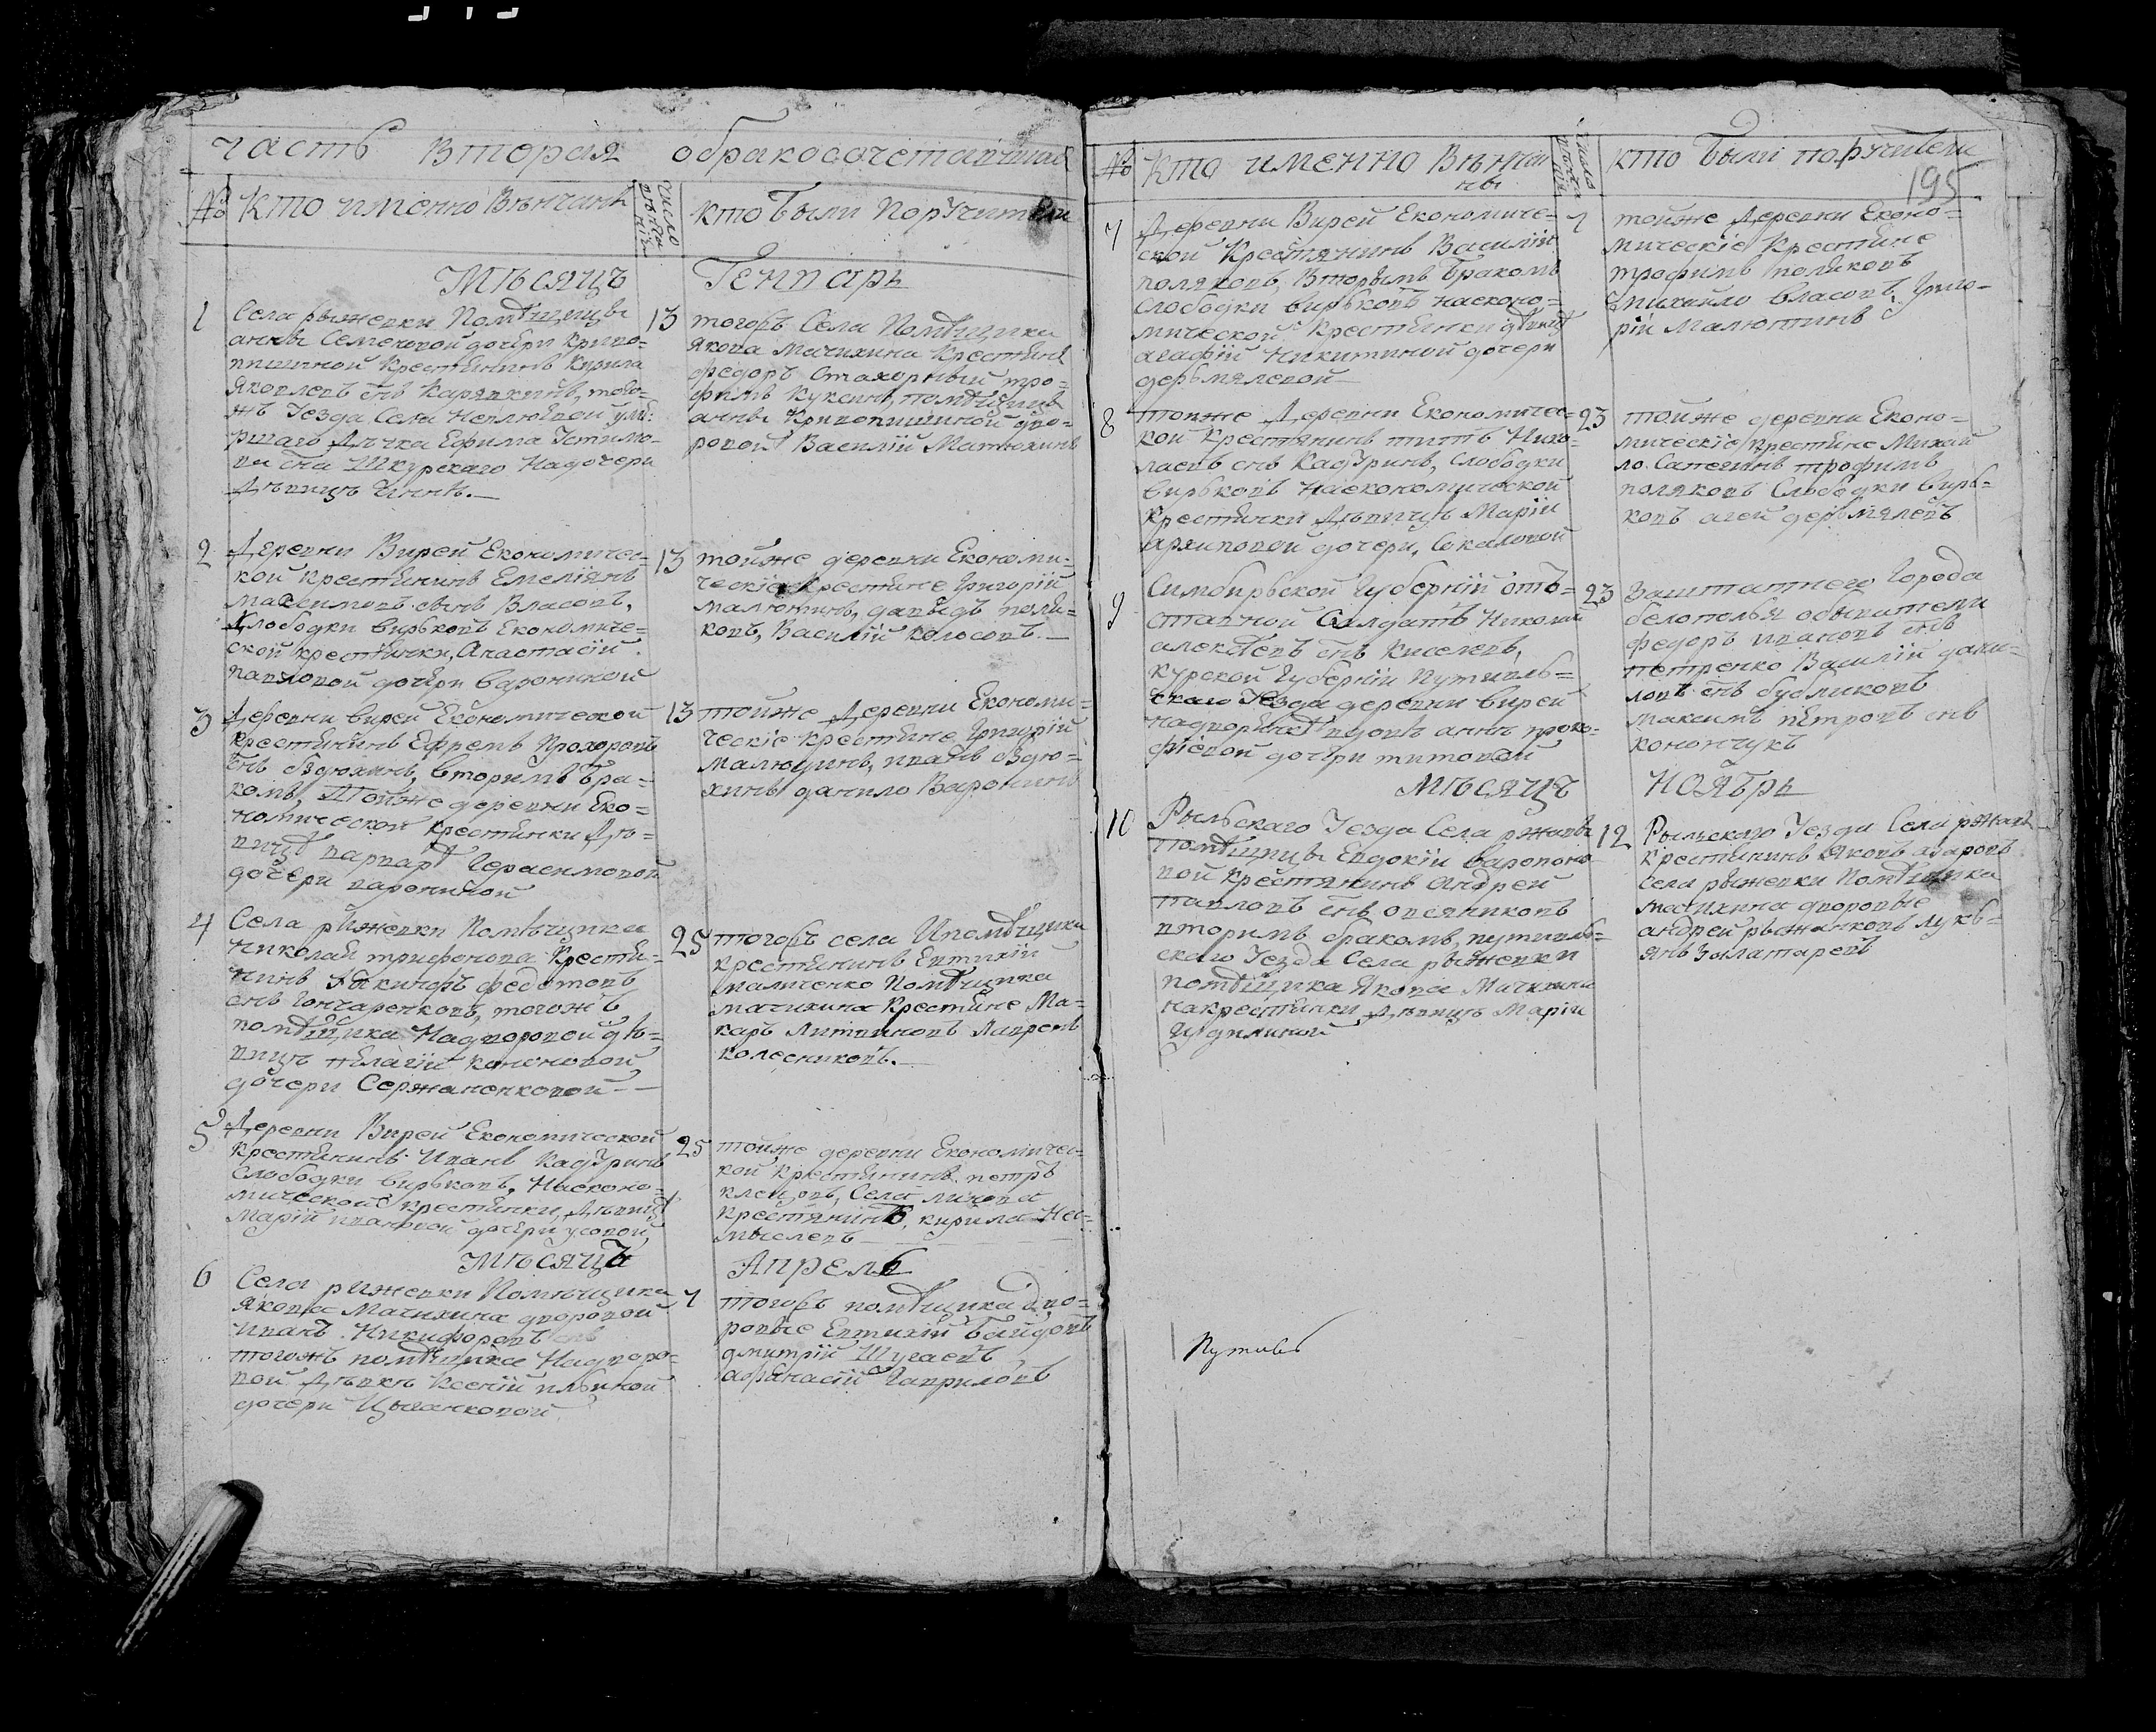 часть вторая обракосочетавшихся
№ кто именно вѣнчанъ число вѣнчаній кто были поручители
Мѣсяцъ Генварь
1 Села рыжевки Помѣщицы 13
анны Семеновой дочери криво-
пишиной крестьянинъ Кирила
Яковлевъ снъ Карякинъ, того-
жъ уезда Села Неплюевой умѣ-
ршаго дьячка Ефима Устимо-
ва сна Шкурскаго надочери
дѣвицѣ Аннѣ.
тогожъ Села Помѣщика
Якова Мачихина крестьяне
федоръ Стахорный тро-
фимъ куксинъ, помѣщицы
анны Кривопишиной дво-
ровой Василій Матюхинъ
2 деревни Вирей Економичес- 13
кой крестьянинъ Емеліянъ
Максимовъ снъ Власовъ,
Слободки вирковъ Економиче-
ской крестьянки, Анастасій
павловой дочери варониной
тойже деревни Економи-
ческіе крестьяне Григорій
малютинъ, давыдъ поля-
ковъ, Василій Колосовъ.
3 деревни вирей Економической 13
крестьянинъ Ефремъ Прохоровъ
снъ вторимъ бра-
комъ, Тойже деревни Еко-
номической крестьянки дѣ-
вицѣ варварѣ Герасимовой
дочери варониной
тойже деревни Економи-
ческіе крестьяне Григорій
малютинъ, иванъ
данило Варонинъ
4 Села рижевки Помѣщика 25
Николая трифонова крестья-
нинъ федотовъ
снъ Гончаренковъ, тогожъ
помѣщика Надворовой дѣ-
вицѣ пелагіи Кононовой
дочери Сержаненковой
тогожъ села Ипомѣщика
крестьянинъ Евтихій
Помѣщика
мачихина крестьяне Ма-
каръ Литвиновъ Лаврепъ
колесниковъ.
5 деревни Вирей Економической 25
крестьянинъ Иванъ Кадуринъ
Слободки вирковъ, Наеконо-
мической крестьянки, дѣвицѣ
Маріи ивановой дочери усовой
тойже деревни Економичес-
кой крестьянинъ петръ
клецовъ, Села линова
крестьянинъ, кирила Нес-
мыслевъ
Мѣсяцъ Апрель
6 Села рижевки Помѣщика 7
Якова Мачихина дворовой
Иванъ Никифоровъ снъ
тогожъ помѣщика Надворо-
вой дѣвкѣ Ксеніи ильиной
дочери Цыганковой
тогожъ помѣщика дво-
ровые Евтихій байдовъ
дмитрій Шугаевъ
афанасій Гавриловъ
№ кто именно вѣнча
ны число вѣнчаній кто были поручители
195
7 деревни Вирей Економиче- 7
ской Крестьянинъ Василій
поляковъ, вторымъ бракомъ
слободки вирковъ наеконо-
мической Крестьянки дѣвицѣ
агафіи Никитиной дочери
дермялевой
тойже деревни Еконо-
мическіе крестьяне
трофимъ поляковъ
михайло власовъ, григо-
рій малютинъ
8 тойже деревни Економичес- 23
кой Крестьянинъ титъ Нико-
лаевъ снъ Кадуринъ, слободки
вирковъ Наекономической
крестьянки дѣвицѣ Маріи
архиповой дочери, Сокаловой
тойже деревни Еконо-
мическіе крестьяне Михай
ло трофимъ
поляковъ Слободки вирь-
ковъ дермялевъ
9 Симбирьской Губерніи отъ- 23
ставной Солдатъ Николай
алексеевъ снъ Киселевъ,
курской Губерніи Путивль-
скаго Уезда деревни вирей
вдовѣ аннѣ проко-
фіевой дочери титовой
Заштатнего Города
белополья обыватели
федоръ ивановъ снъ
петренко Василій дани-
ловъ снъ бубликовъ
максимъ петровъ снъ
конончукъ
Мѣсяцъ Ноябрь
10 Рыльскаго Уезда Села ржавы 12
помѣщицы Евдокіи варопоно
вой крестьянинъ Андрей
павловъ снъ овсяниковъ
вторимъ бракомъ, путивль-
скаго Уезда Села рыжевки
помѣщика Якова Мачихина
накрестьянки дѣвицѣ Маріи
Рыльскаго Уезда Села ржавы
крестьянинъ Яковъ азаровъ
села рыжевки помѣщика
мачихина дворовые
андрей рыжанковъ лукь-
янъ Золатаревъ
Путивль